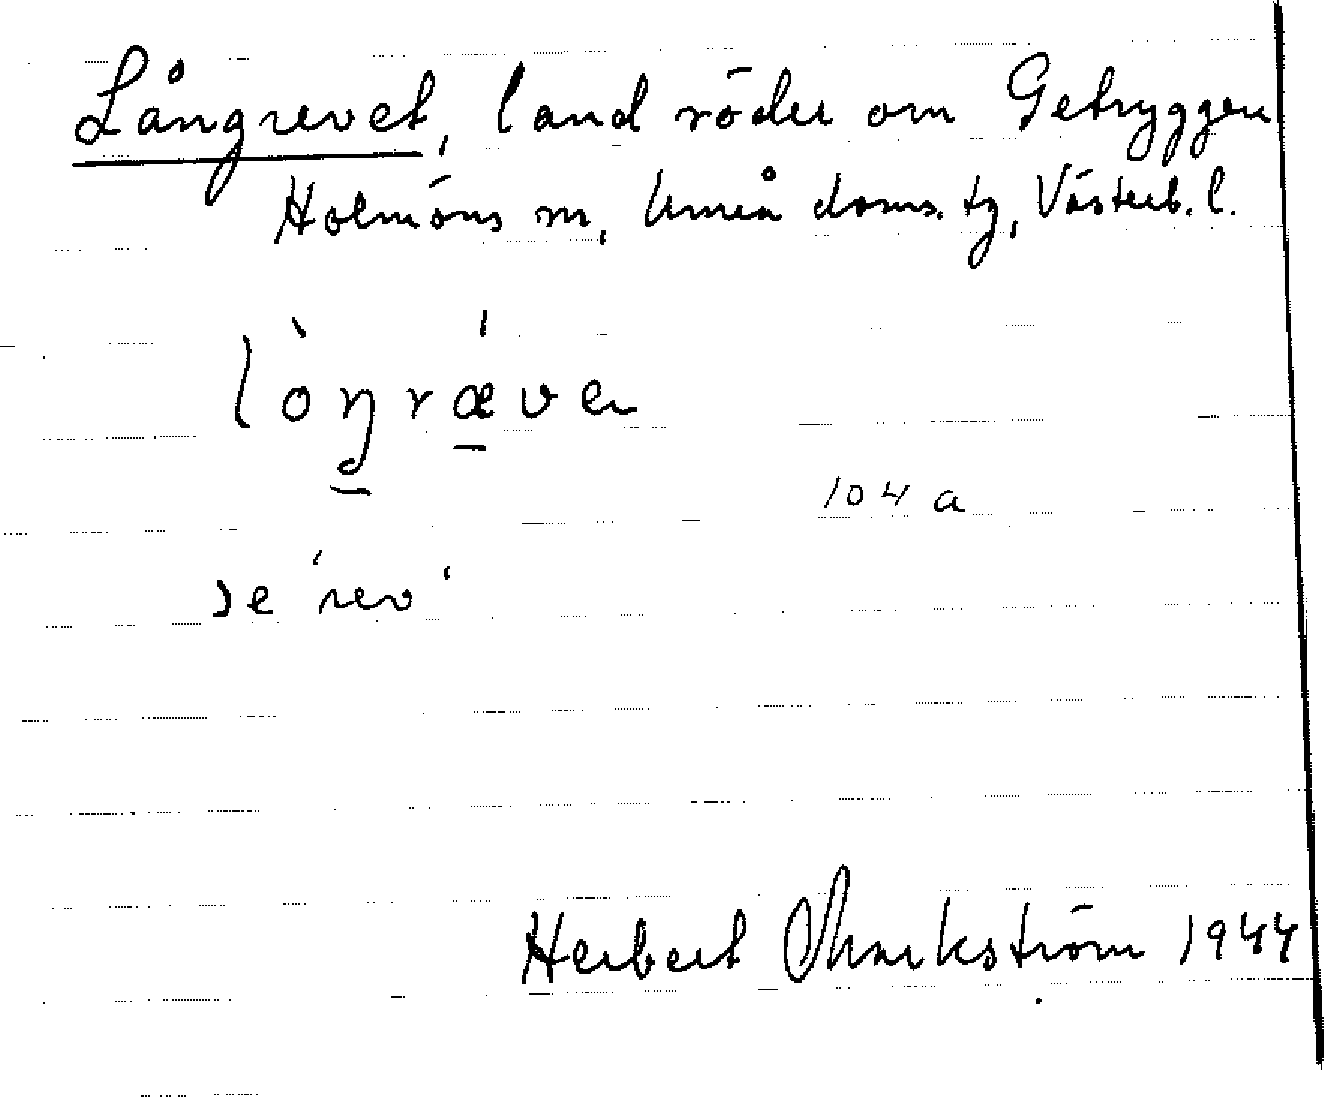 Långrevet, land söder om Getryggen
Holmöns sn, Umeå doms. tg, Västerb. l.
lòŋræ̀ven
104 a
se 'rev'
Herbert Markström 1944